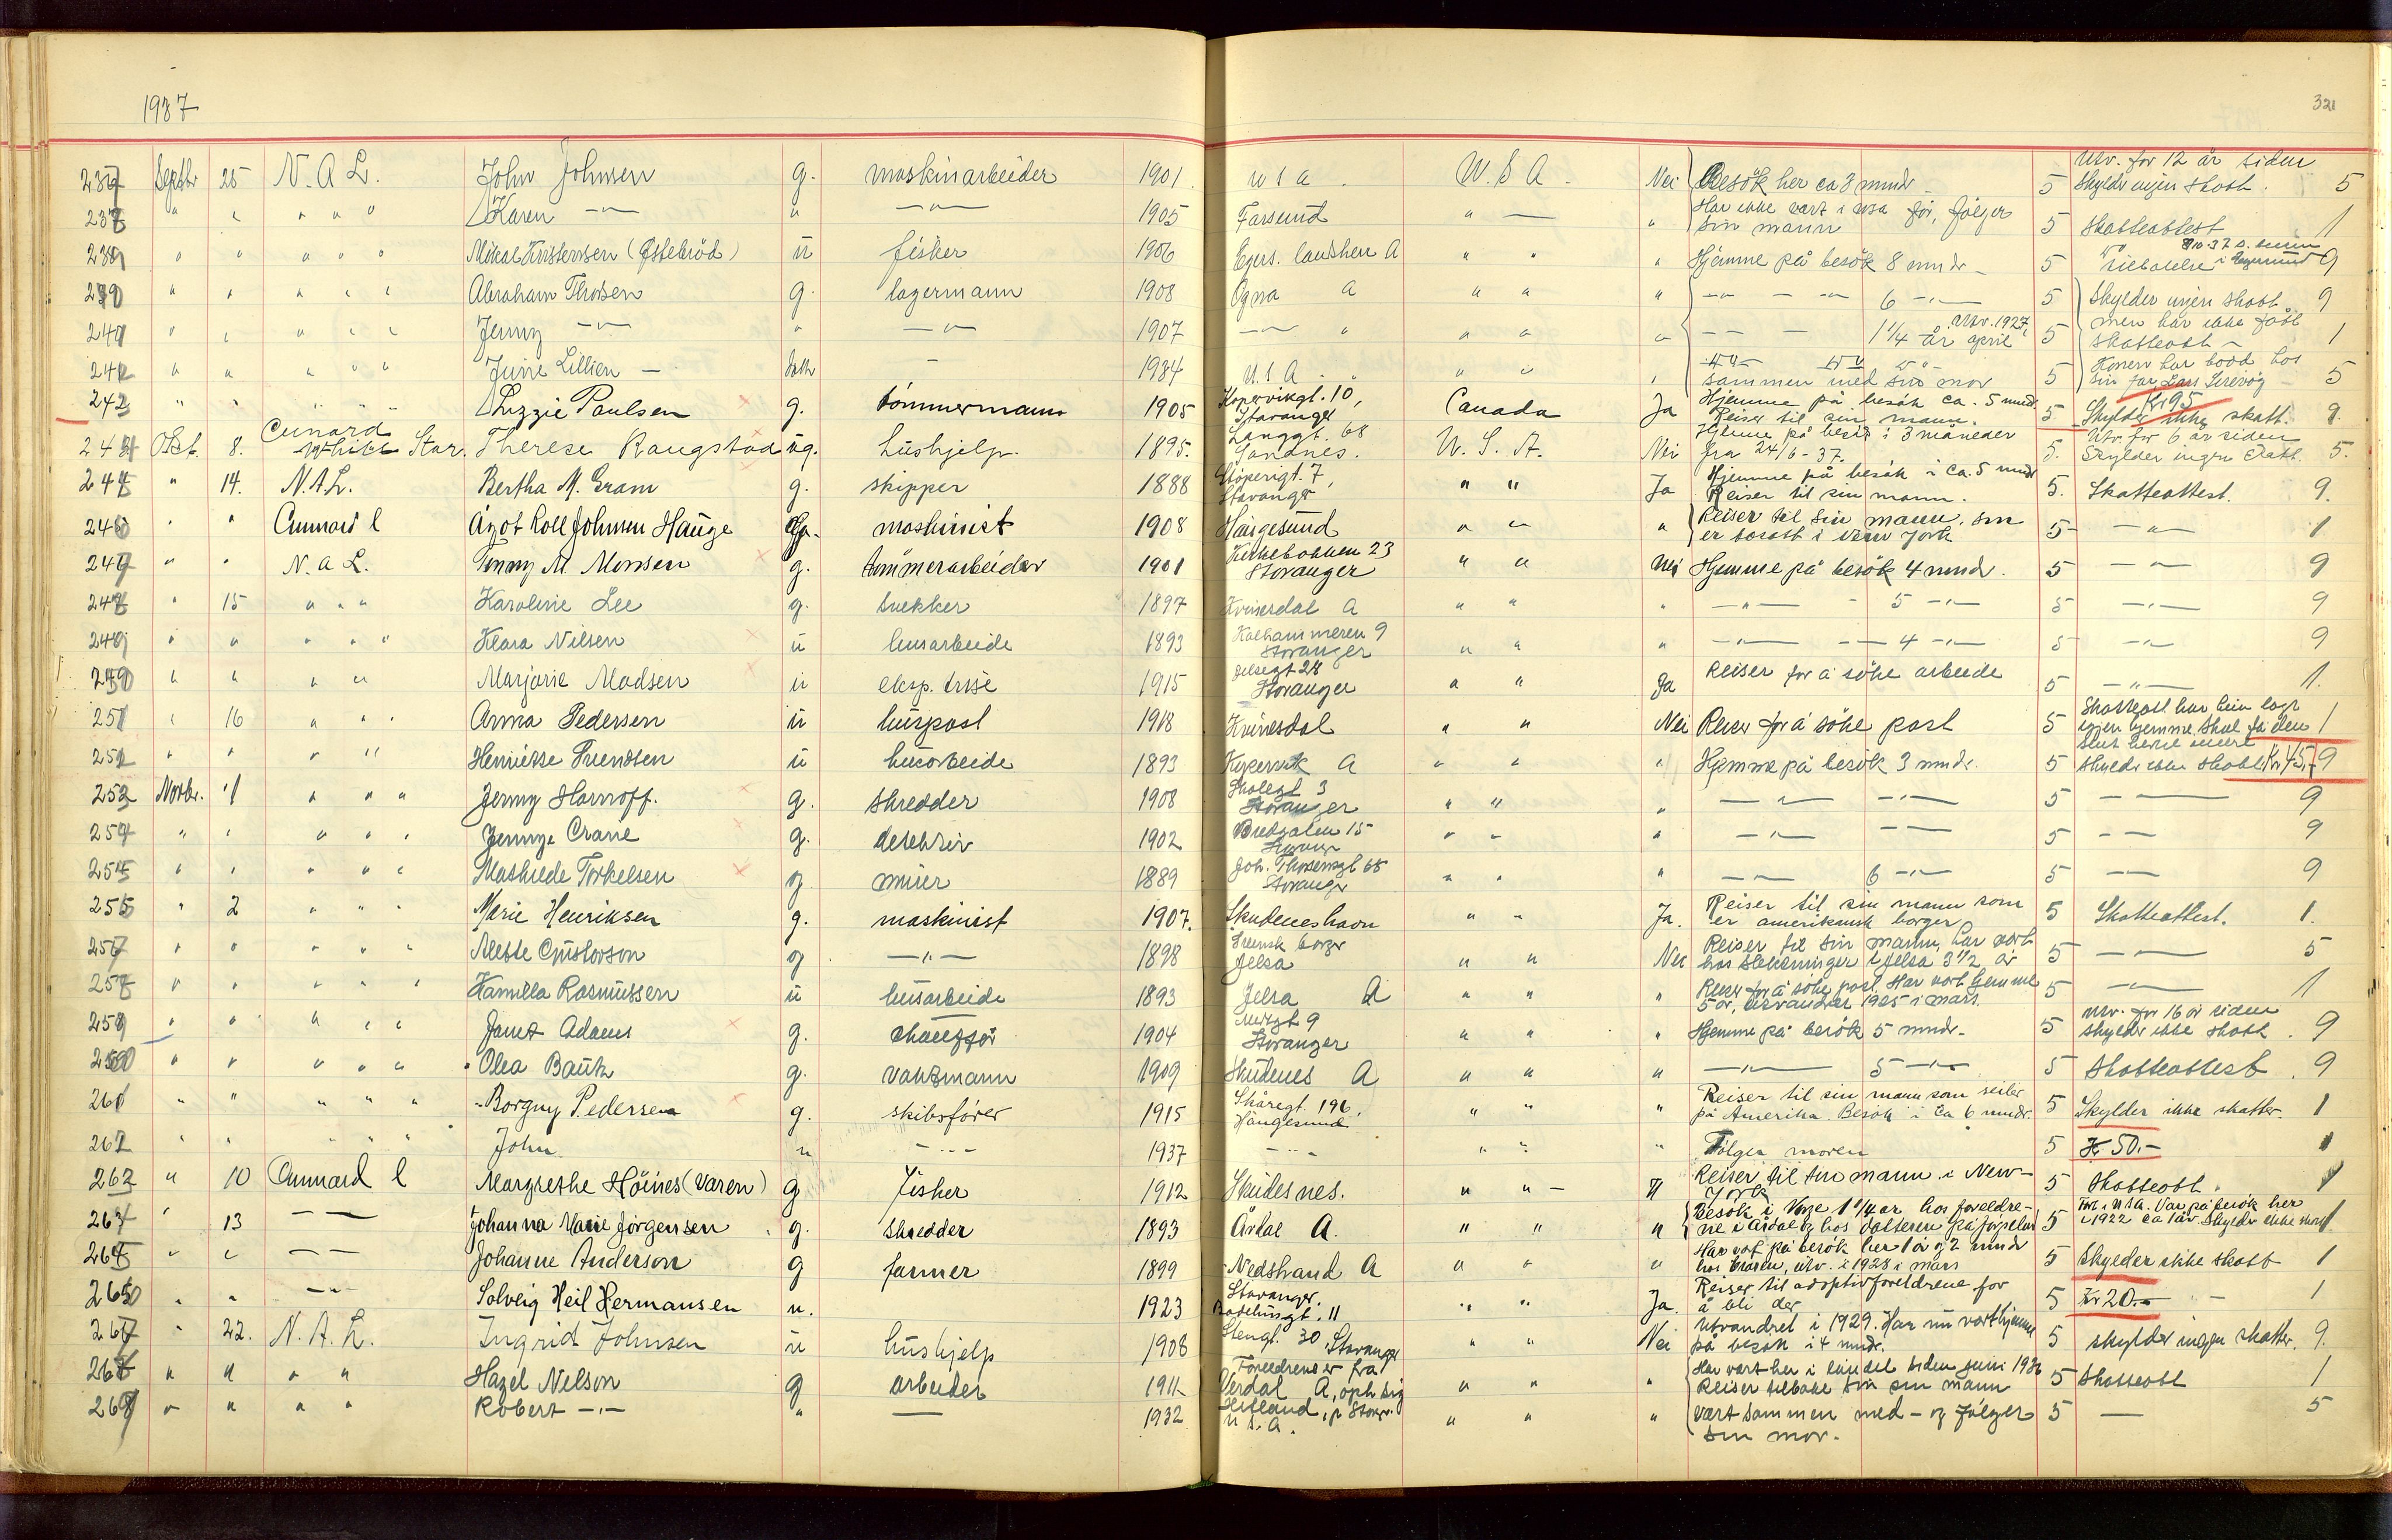 1937
321
237 Septbr 25 N. A L. John Johnsen g. maskinarbeider 1901. U S A. U. S A. Nei Besök her ca 3 mndr 5 Utv. for 12 år siden Skylder ingen skatt. 5
238 " " " " " Karen —"— " —"— 1905 Farsund " — " Har ikke vært i USA för, fölger sin mann 5 Skatteattest 1
239 " " " " " Mikal Kristensen (Östebröd) u fisker 1906 Egers. landshere A " " " Hjemme på besök 8 mndr 5 9
240 " " " " " Abraham Thorsen g. lagermann 1908 Ogna A " " " —"— —"— 6 —"— 5 Skylder ingen skatt 9
241 " " " " " Jenny —"— " —"— 1907 —"— " " " " — — — 1 1/4 år Utv. 1927, april 5 men har ikke fått skatteatt— 1
242 " " " " " June Lillien — datter — 1934 U. S A " " " sammen med sin mor 5 Konen har bodd hos sin far, Lars 5
243 " " " " " Lizzie Paulsen g. tömmermann 1905 Kopervikgt. 10, Stavanger Canada Ja Hjemme på besök ca. 5 mndr. Reiser til sin mann. 5 Kr 95 Skylder ikke skatt. 9.
244 Okt. 8. Cunard White Star. Therese Raugstad ug. hushjelp. 1895. Langgt. 68 Sandnes. U. S. A. Nei Hjemme på besök i 3 måneder fra 24/6 - 37. 5. Utv. for 6 år siden Skylder ingen skatt. 5.
245 " 14. N.A.L. Bertha M. Gram g. skipper 1888 Stöperigt. 7, Stavanger " " Ja Hjemme på besök i ca. 5 mndr Reiser til sin mann. 5. Skatteattest. 9.
246 " " Cunnard l Ågot Roll Johnsen Hauge g. maskinist 1908 Haugesund " " " Reiser til sin mann, som er bosatt i New York 5 —"— 1
247 " " N. A L. Jenny M. Monsen g. tömmerarbeider 1901 Kirkebakken 23 Stavanger " " Nei Hjemme på besök 4 mndr. 5 —"— 9
248 " 15 " " " Karoline Lee g. snekker 1897 Kvinesdal A " " " —"— - 5 —"— 5 —"— 9
249 " " " " " Klara Nilsen u husarbeide 1893 Kalhammeren 9 Stavanger " " " —"— — 4 —"— 5 —"— 9
250 " " " " Marjorie Madsen u eksp. trise 1915 Jelsegt 28 Stavanger " " Ja Reiser for å söke arbeide 5 —"— 1.
251 " 16 " " " Anna Pedersen u huspost 1918 Kvinesdal " " Nei Reiser for å söke post 5 Skatteatt har hun lagt igjen hjemme. Skal få den 1
252 " " " " Henriette Svendsen u husarbeide 1893 Kopervik A " " " Hjemme på besök 3 mndr. 5 skylder ikke skatt. Kr. 45,- 9
253 Novbr. 1 " " " Jenny Harnoff. g. skredder 1908 Skolegt 3 Stavanger " " " —"— —"— 5 — 9
254 " " " " " Jennye Crane g. detektiv 1902 Bredgaten 15 Stavanger " " " —"— — 5 — — 9
255 " " " " " Mathilde Torkelsen g murer 1889 Joh. Thorsensgt 68 Stavanger " " " —"— 6 —"— 5 — 9
256 " 2 " " " Marie Henriksen g. maskinist 1907. Skudeneshavn " " Ja. Reiser til sin mann som er amerikansk borger 5 Skatteattest. 1.
257 " " " " " Mette Gustavson g —"— 1898 Svensk borger Jelsa " " Nei Reiser til sin mann, har vært hos slektninger i Jelsa 3 1/2 år 5 —"— 5
258 " " " " " Kamilla Rasmussen u husarbeide 1893 Jelsa A " " " Reiser for å söke post. Har vært hjemme 5 år, utvandret 1925 i mars 5 —"— 1
259 " " " " " Janet Adams g. chaufför 1904 9 Stavanger " " " Hjemme på besök 5 mndr. 5 Utv. for 16 år siden skylder ikke skatt. 9
260 " " " " " Olea Bauk g. vaktmann 1909 Skudenes A " " " —"— 5 —"— 5 Skatteattest. 9
261 " " " " " Borgny Pedersen g. skibsförer 1915 Skåregt. 196, Haugesund " " " Reiser til sin mann som seiler på Amerika. Besök i ca 6 mndr. 5 Skylder ikke skatter. 1
262 " " " " " John u —"— 1937 —"— " " " Fölger moren 5 Kr 50.- 1
263 " 10 Cunnard l Margrethe Höines (Varen) g fisher 1912 Skudesnes. " " — " Reiser til sin mann i New-York 5 Skatteatt. 1
264 " 13 — — Johanna Marie Jörgensen g. skredder 1893 Årdal A. " " " Besök i Norge 1 1/4 år hos foreldre-ne i Årdal og hos datteren på Jörpeland 5 Før i USA. Var på besök her i 1922 ca 1 år. Skylder ikke skatt 1
265 " " — — Johanne Anderson g farmer 1899 Nedstrand A " " " Har vært på besök her 1 år og 2 mndr hos broren, utv. i 1928 i mars 5 Skylder ikke skatt 1
266 " " — — Solveig Heil Hermansen u. 1923 Stavanger. Badehusgt. 11 " " Ja. Reiser til adoptivforeldrene for å bli der 5 Kr 20.- 1
267 " 22. N. A. L. Ingrid Johnsen u hushjelp 1908 Stengt. 30 Stavanger " " Nei Utvandret i 1929. Har nu vært hjemme på besök i 4 mndr. 5 skylder ingen skatter. 9.
268 " " " " Hazel Nelson g arbeider 1911 Foreldrene er fra A, oph. sig " " " Har vært her i landet siden juni 1936 Reiser tilbake sin mann 5 Skatteatt 1
269 " " " " Robert —"— " — 1932 U. S. A. " " " Vært sammen med - og fölger sin mor. 5 — 5